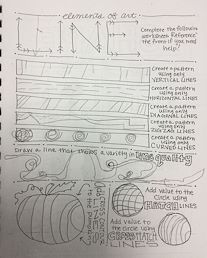 elements of art
Complete the
following
worksheet. Reference
the front if you need
help!
Create a pattern
using only
VERTICAL LINES
Create a pattern
using only
HORIZONTAL LINES
Create a pattern
using only
DIAGONAL LINES
Create a pattern
using only
ZIGZAG LINES
Create a pattern
using only
CURVED LINES
Draw a line that shows a variety in line quality
Add value to
the circle using
HATCH LINES
Add value to
the circle using
CROSSHATCH
LINES